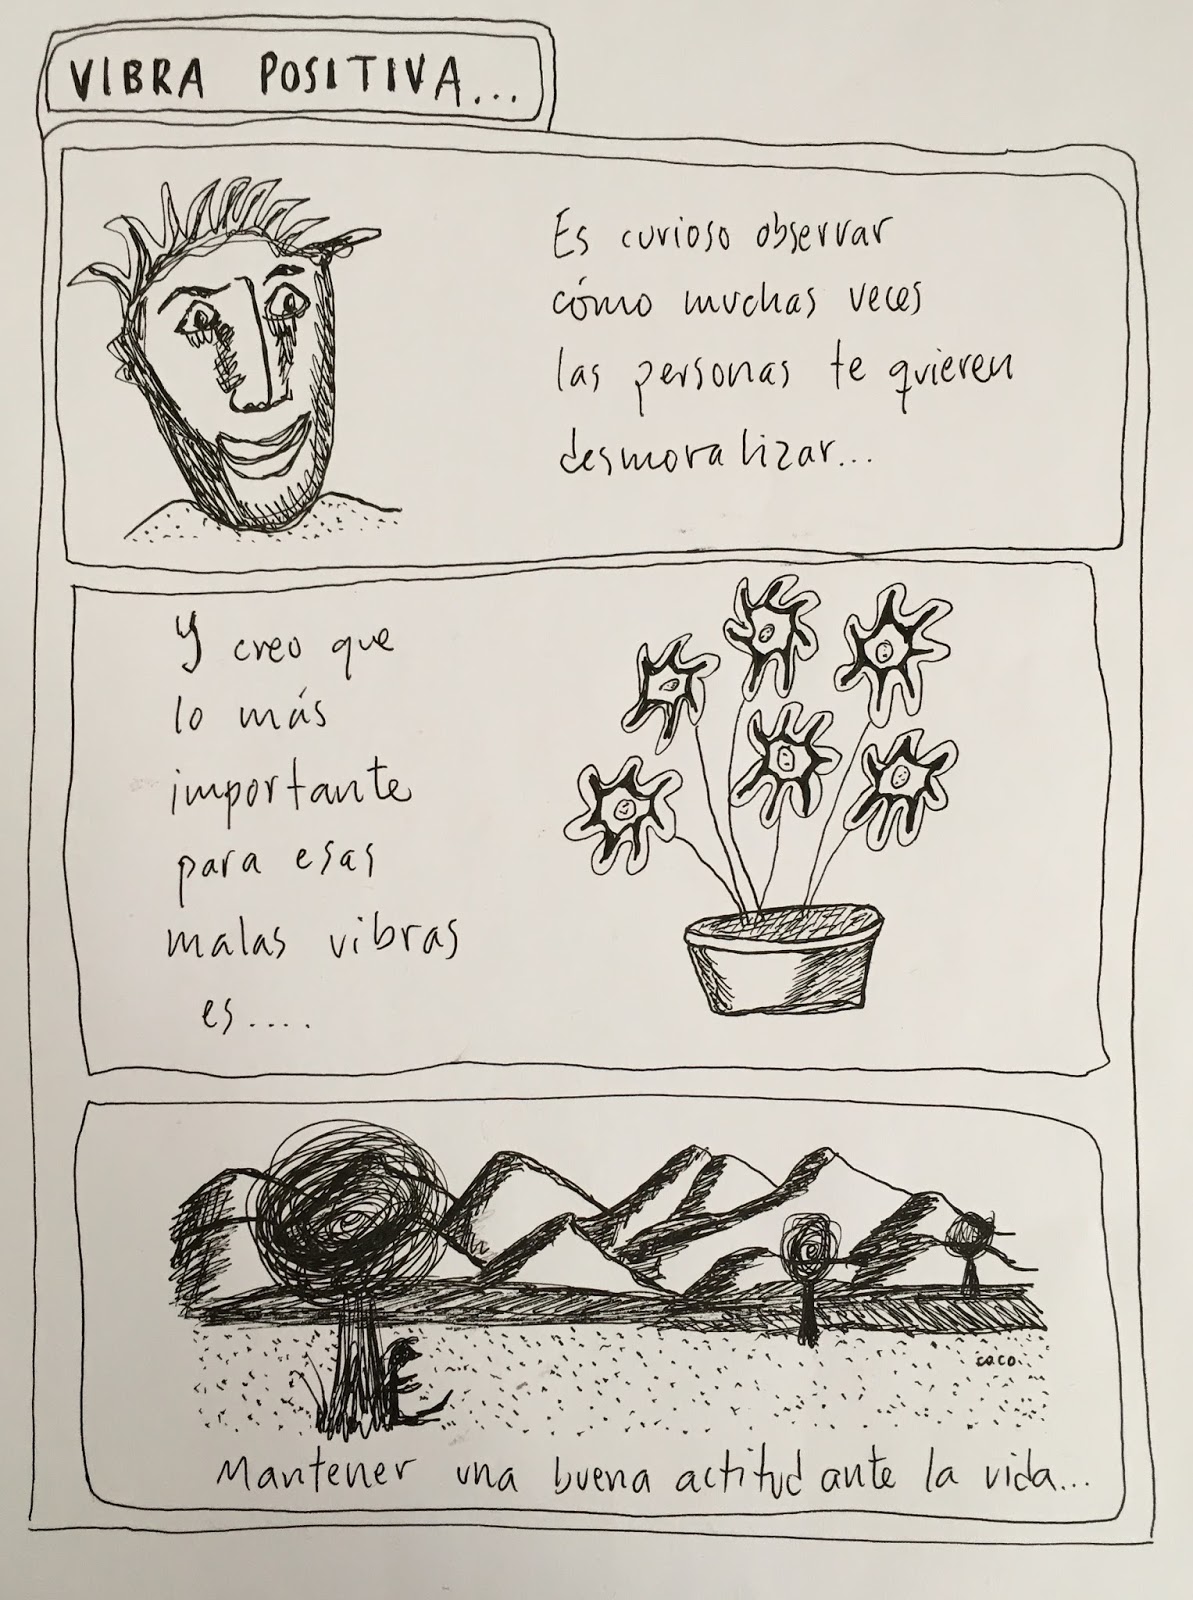 VIBRA POSITIVA...
Es curioso observar
cómo muchas veces
las personas te quieren
desmoralizar...
Y creo que
lo más
importante
para esas
malas vibras
es....
coco.
Mantener una buena actitud ante la vida...